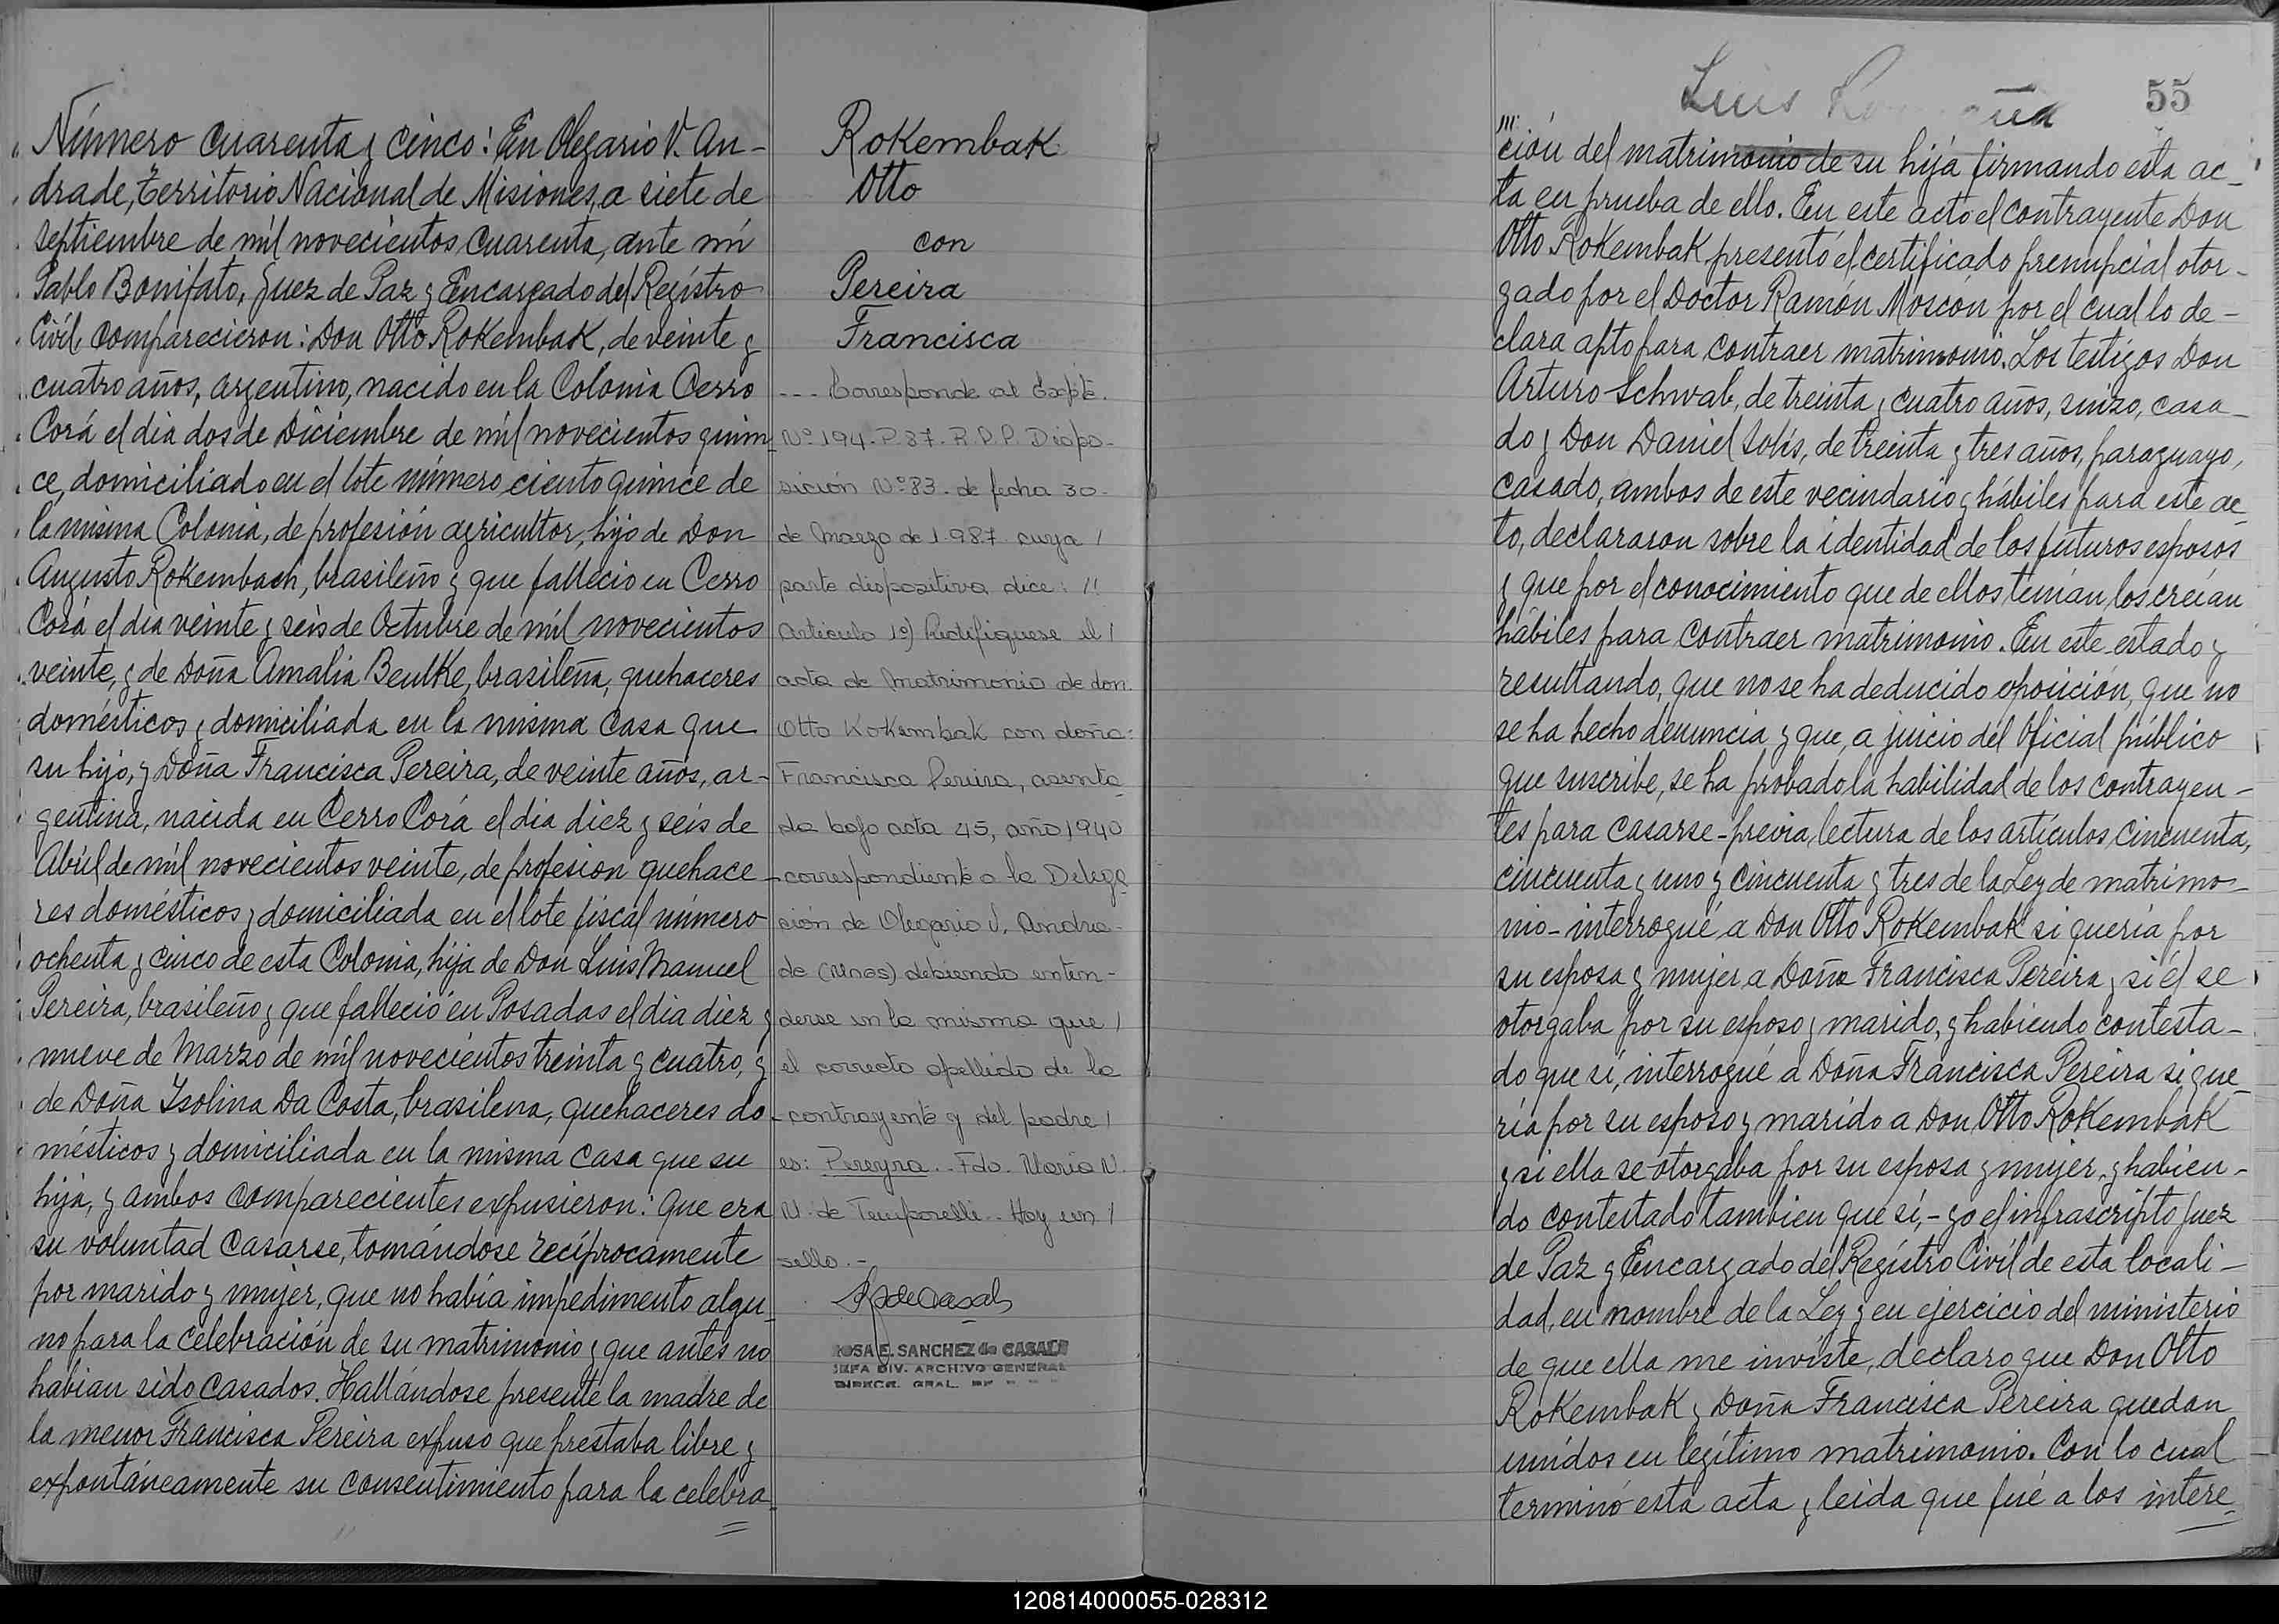 Número cuarenta y cinco: En Olegario V. An-
drade, Territorio Nacional de Misiones, a siete de
septiembre de mil novecientos cuarenta, ante mí
Pablo Bonifato, Juez de Paz y Encargado del Registro
Civil comparecieron: Don Otto Rokembak, de veinte y
cuatro años, argentino, nacido en la Colonia Cerro
Corá el dia dos de Diciembre de mil novecientos quin-
ce, domiciliado en el lote número ciento quince de
la misma Colonia, de profesión agricultor, hijo de Don
Augusto Rokembach, brasileño y que falleció en Cerro
Corá el dia veinte y seis de Octubre de mil novecientos
veinte, y de Doña Amalia Beulke, brasileña, quehaceres
domésticos y domiciliada en la misma casa que
su hijo, y Doña Francisca Pereira, de veinte años, ar-
gentina, nacida en Cerro Corá el dia diez y seis de
Abril de mil novecientos veinte, de profesion quehace-
res domésticos y domiciliada en el lote fiscal número
ochenta y cinco de esta Colonia, hija de Don Luis Manuel
Pereira, brasileño y que falleció en Posadas el dia diez y
nueve de Marzo de mil novecientos treinta y cuatro, y
de Doña Isolina Da Costa, brasilena, quehaceres do-
mésticos y domiciliada en la misma casa que su
hija, y ambos comparecientes expusieron: Que era
su voluntad casarse, tomándose recíprocamente
por marido y mujer, que no había impedimento algu-
no para la celebración de su matrimonio y que antes no
habian sido casados. Hallándose presente la madre de
la menor Francisca Pereira expuso que prestaba libre y
expontáneamente su consentimiento para la celebra-
Rokembak
Otto
con
Pereira
Francisca
--- Corresponde al Expte.
Nº 194-P-87-R.P.P. Dispo-
sición Nº 83 de fecha 30-
de Marzo de 1.987 cuya /
parte dispositiva dice: "
Artículo 1º) Rectifiquese el /
acta de Matrimonio de don
Otto Rokembak con doña:
Francisca Pereira, asenta-
da bajo acta 45, año 1940
correspondiente a la Delega-
ción de Olegario V. Andra-
de (Mnes) debiendo enten-
derse en la misma que /
el correcto apellido de la
contrayente y del padre /
es: Pereyra. Fdo. María N.
N. de Temporelli.- Hay un /
sello.-
ROSA E. SANCHEZ de CASALS
JEFA DIV. ARCHIVO GENERAL
DIRECC. GRAL.
Luis
55
///
ción del matrimonio de su hija firmando esta ac-
ta en prueba de ello. En este acto el contrayente Don
Otto Rokembak presentó el certificado prenupcial otor-
gado por el Doctor Ramón Moscón por el cual lo de-
clara apto para contraer matrimonio. Los testigos Don
Arturo Schwab, de treinta y cuatro años, suizo, casa-
do y Don Daniel Solis, de treinta y tres años, paraguayo,
casado, ambos de este vecindario y hábiles para este ac-
to, declararon sobre la identidad de los futuros esposos
y que por el conocimiento que de ellos tenían, los creían
hábiles para contraer matrimonio. En este estado y
resultando, que no se ha deducido oposición, que no
se ha hecho denuncia y que, a juicio del Oficial público
que suscribe, se ha probado la habilidad de los contrayen-
tes para casarse - previa lectura de los artículos cincuenta,
cincuenta y uno y cincuenta y tres de la Ley de matrimo-
nio - interrogué a Don Otto Rokembak si quería por
su esposa y mujer a Doña Francisca Pereira y si él se
otorgaba por su esposo y marido, y habiendo contesta-
do que sí, interrogué a Doña Francisca Pereira si que-
ría por su esposo y marido a Don Otto Rokembak
y si ella se otorgaba por su esposa y mujer, y habien-
do contestado tambien que sí, - yo el infrascripto Juez
de Paz y Encargado del Registro Civil de esta locali-
dad, en nombre de la Ley y en ejercicio del ministerio
de que ella me inviste, declaro que Don Otto
Rokembak y Doña Francisca Pereira quedan
unidos en legítimo matrimonio. Con lo cual
terminó esta acta y leida que fué a los intere-
120814000055-028312